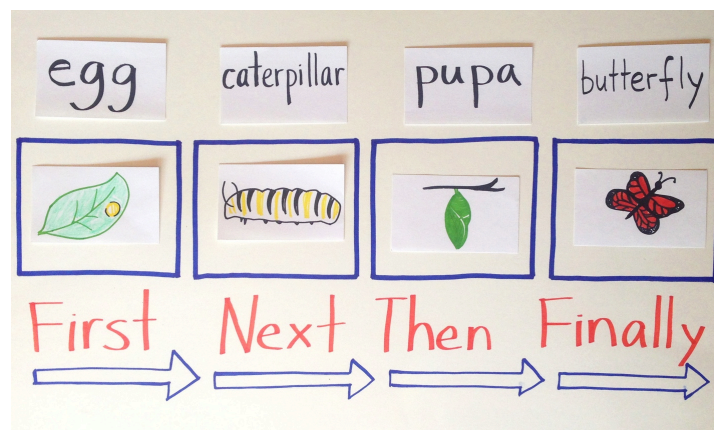 egg caterpillar pupa butterfly
First Next Then Finally